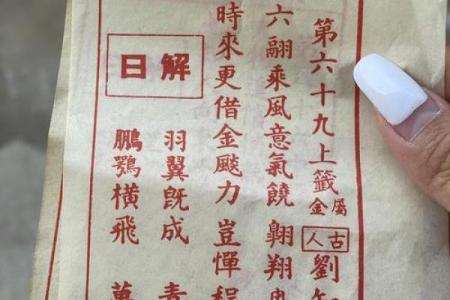 第六十九上籤 屬金 古人 劉
六翮乘風意氣饒 翱翔
時來更借金飈力 豈憚程
解日
羽翼旣成
鵬鶚橫飛 萬